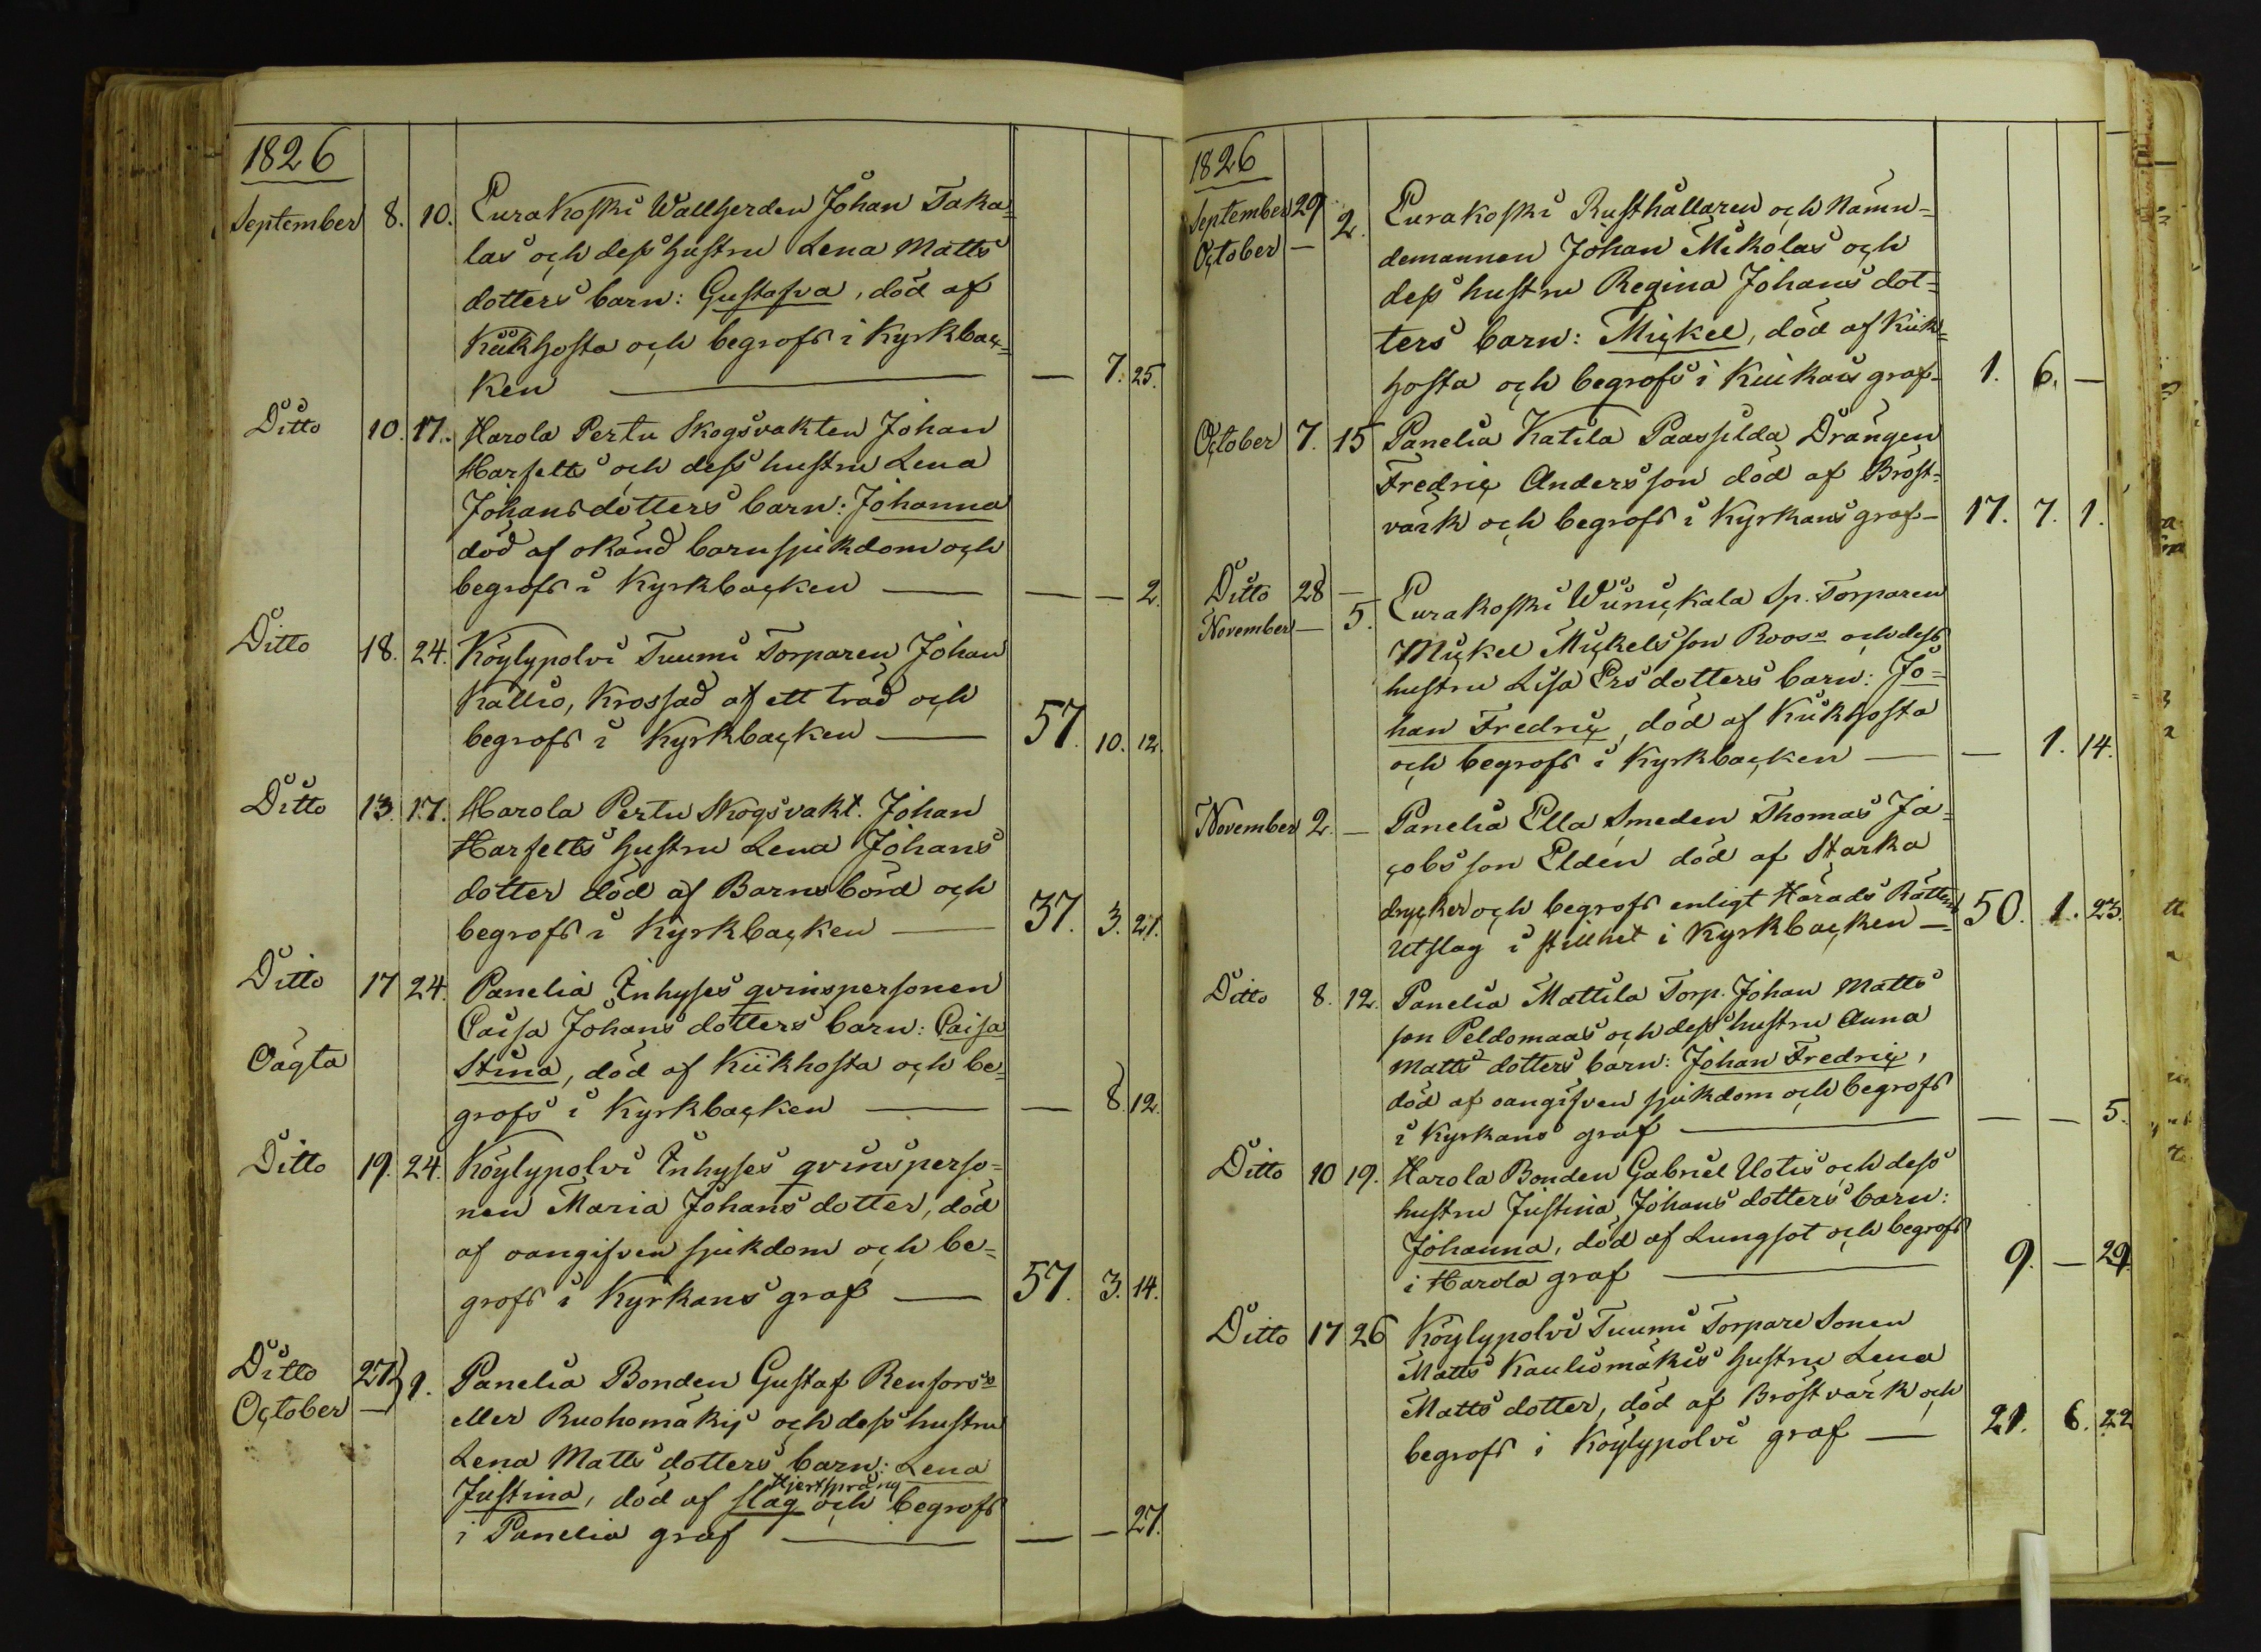 1826
September 8. 10. Eurakoski Wallherden Johan Taka=
las och dess hustru Lena Matts
dotters barn: Gustafva, död af
Kikhosta och begrofs i Kyrkbac=
ken — — 7. 25.
Ditto 10. 17. Harola Pertu Skogsvakten Johan
Harfelts och dess hustru Lena
Johansdotters barn: Johanna
död af okänd barnsjukdom och
begrofs i Kyrkbacken — — — 2.
Ditto 18. 24. Köylypolvi Tuumi Torparen Johan
Kallio, Krossad af ett träd och
begrofs i Kyrkbacken — 57. 10. 12.
Ditto 13. 17. Harola Pertu Skogsvakt. Johan
Harfelts hustru Lena Johans
dotter död af Barnsbörd och
begrofs i Kyrkbacken — 37. 3. 27.
Ditto 17 24. Panelia Inhyses qvinspersonen
Caisa Johans dotters barn: Caisa
Oägta Stina, död af Kikhosta och be=
grofs i Kyrkbacken — — 8. 12.
Ditto 19. 24. Köylypolvi Inhyses qvinsperso=
nen Maria Johans dotter, död
af oangifven sjukdom och be=
grofs i Kyrkans graf — 57. 3. 14.
Ditto 27. } 1. Panelia Bonden Gustaf Renfors's
October — eller Ruohomäkis och dess hustru
Lena Matts dotters barn: Lena
Hjertspräng
Justina, död af slag och begrofs
i Panelia graf — — — 27.
1826
September 29 2. Eurakoski Rusthållaren och Nämn=
October — demannen Johan Mikolas och
dess hustru Regina Johans dot=
ters barn: Mickel, död af Kik=
hosta och begrofs i Kiukais graf — 1. 6. —
October 7. 15 Panelia Katila Paassilda Drängen
Fredric Andersson död af Bröst=
värk och begrofs i Kyrkans graf — 17. 7. 1.
Ditto 28 — Eurakoski Winickala Sp. Torparen
November — 5. Mickel Mickelsson Roos's och dess
hustru Lisa Ersdotters barn: Jo=
han Fredric, död af Kikhosta
och begrofs i Kyrkbacken — — 1. 14.
November 2. — Panelia Ella Smeden Thomas Ja=
cobsson Eldén död af Starka
drycker och begrofs enligt Härads Rättens
Utslag i stillhet i Kyrkbacken — 50. 1. 23.
Ditto 8. 12. Panelia Mattila Torp. Johan Matts
son Peldomaas och dess hustru Anna
Matts dotters barn: Johan Fredric,
död af oangifven sjukdom och begrofs
i Kyrkans graf — — — 5.
Ditto 10 19. Harola Bonden Gabriel Uotis och dess
hustru Justina Johans dotters barn:
Johanna, död af Lungsot och begrofs
i Harola graf — 9. — 29.
Ditto 17 26 Köylypolvi Tuumi Torpare Sonen
Matts Kauliomäkis hustru Lena
Matts dotter, död af Bröstvärk och
begrofs i Köylypolvi graf — 21. 6. 22